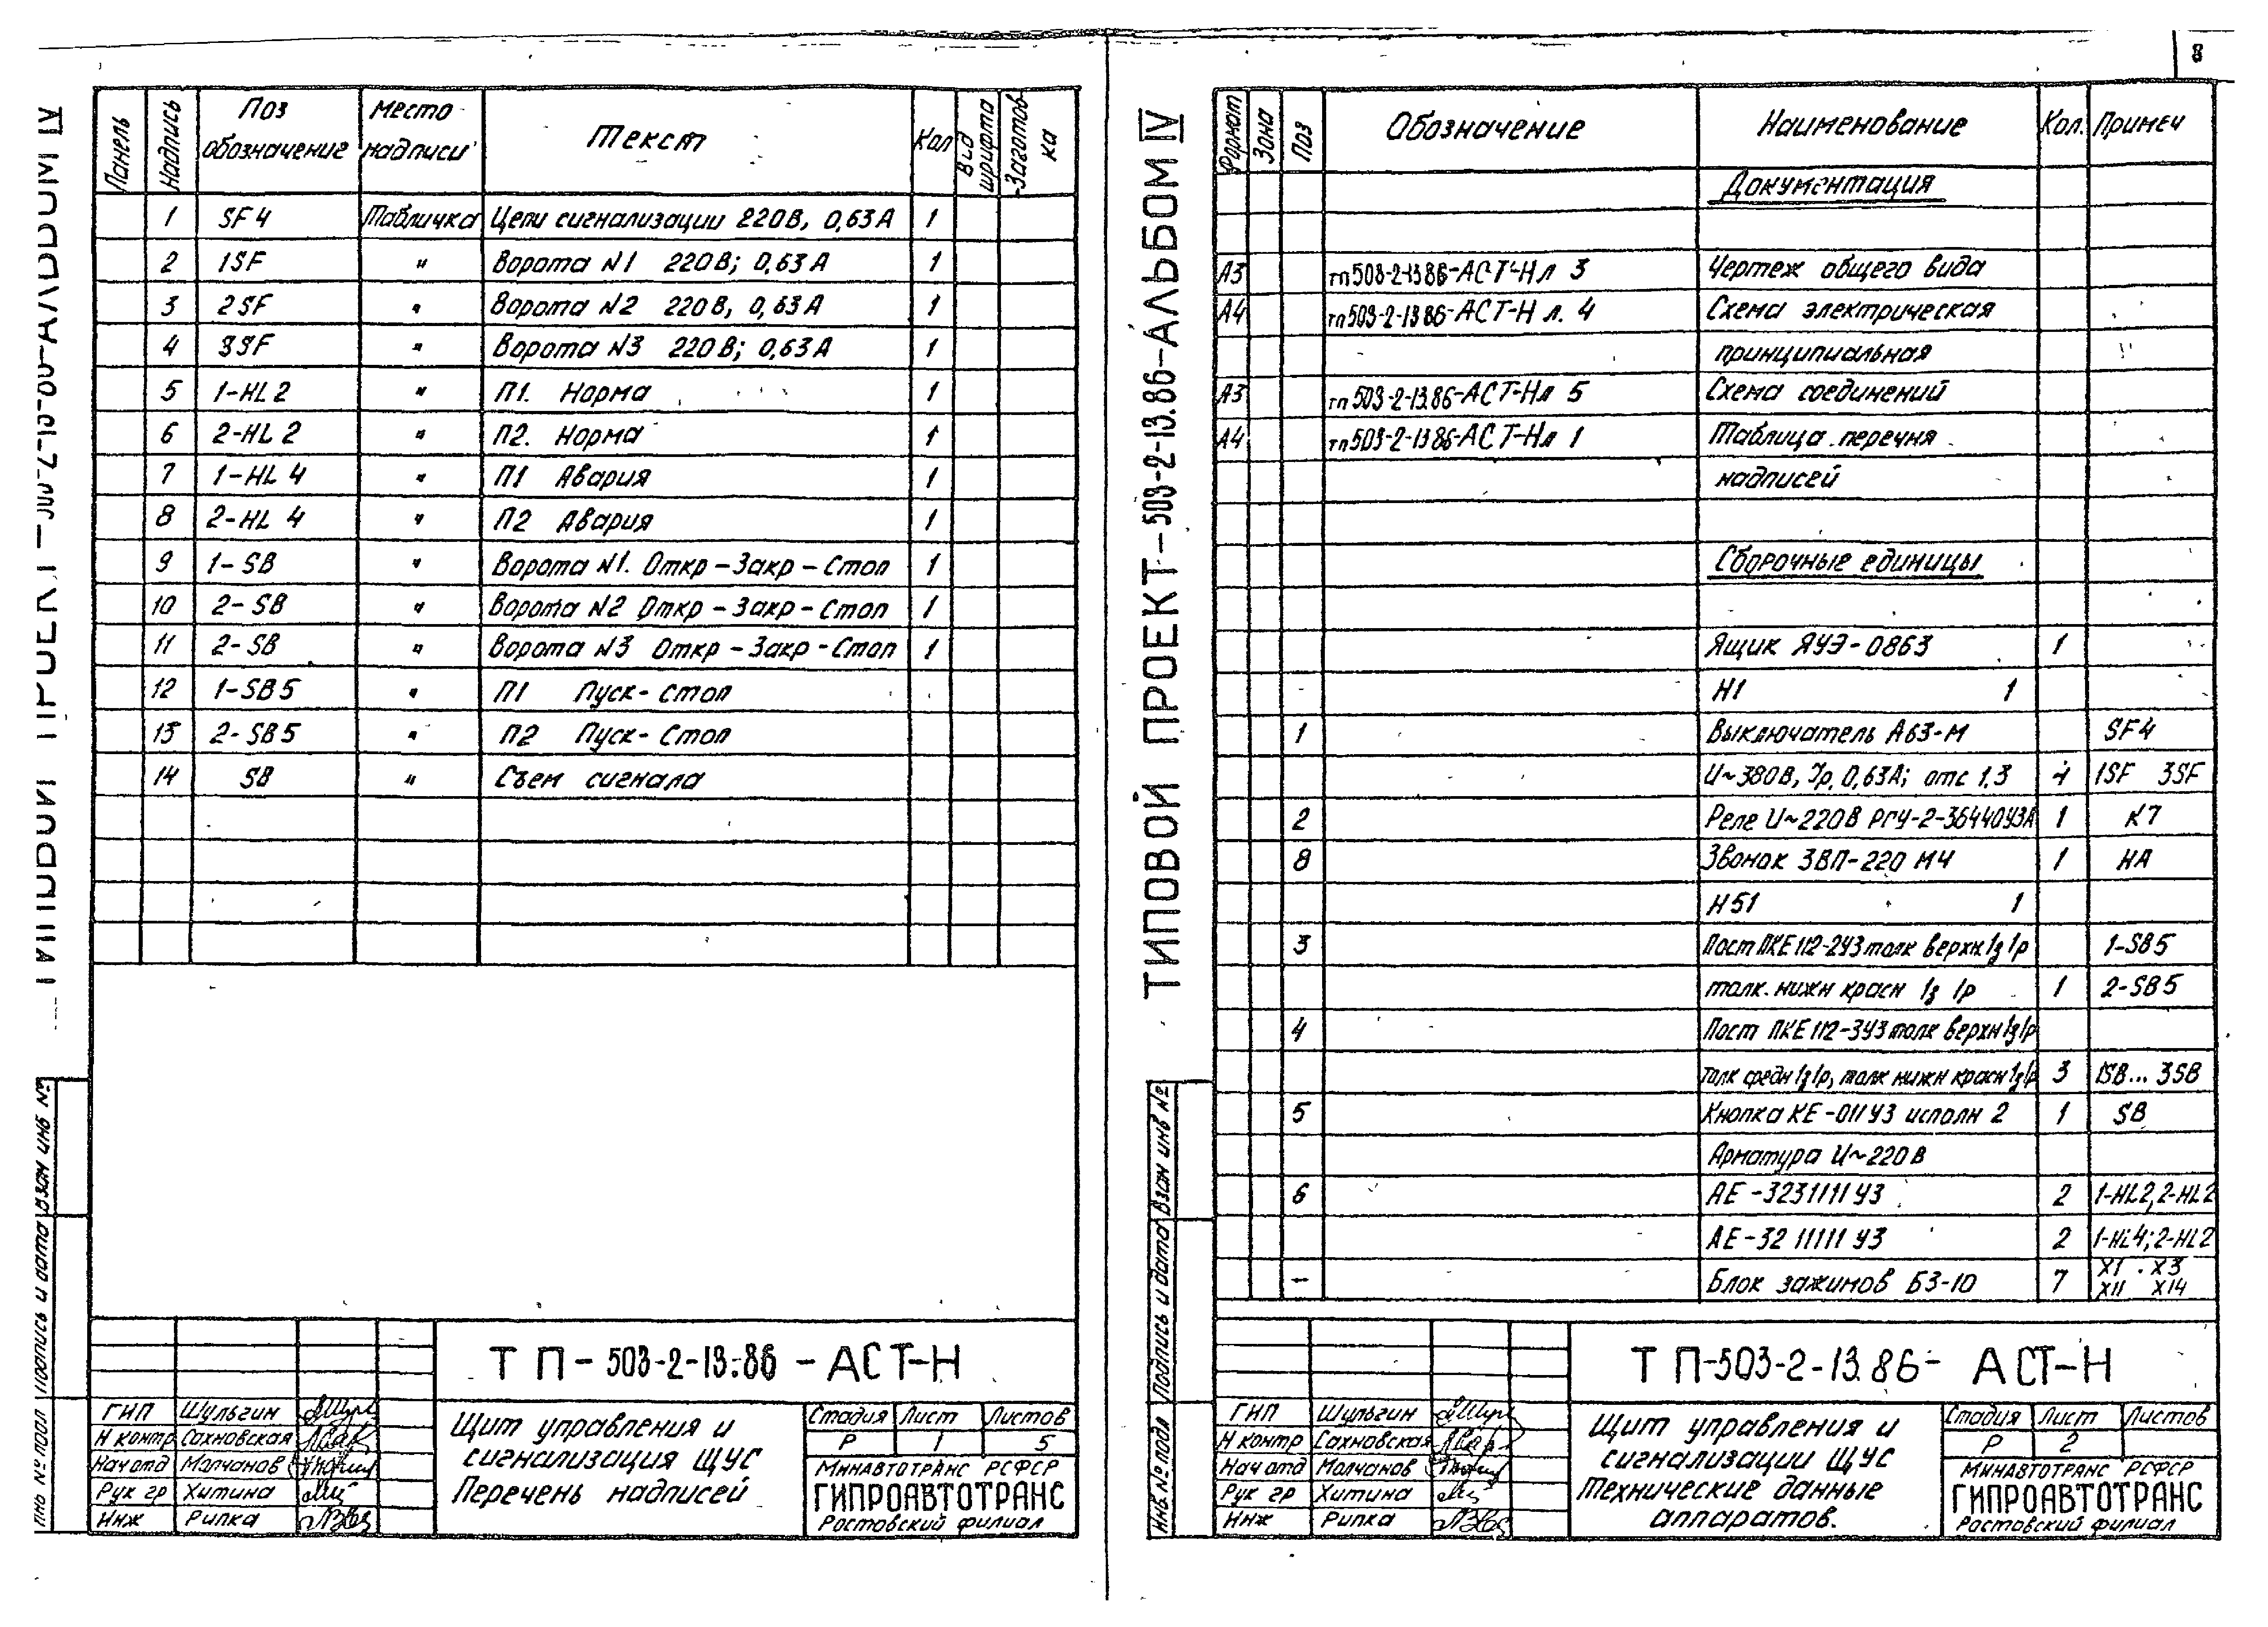 8
ТИПОВОЙ ПРОЕКТ-503-2-13.86-АЛЬБОМ IV
Панель
Надпись
Поз обозначение
Место надписи
Текст
Кол
Вид шрифта
Заготовка
1 SF4 Табличка Цепи сигнализации 220В, 0,63А 1
2 1SF " Ворота N1 220В; 0,63А 1
3 2SF " Ворота N2 220В, 0,63А 1
4 3SF " Ворота N3 220В; 0,63А 1
5 1-HL2 " П1. Норма 1
6 2-HL2 " П2. Норма 1
7 1-HL4 " П1 Авария 1
8 2-HL4 " П2 Авария 1
9 1-SB " Ворота N1. Откр-Закр-Стоп 1
10 2-SB " Ворота N2 Откр-Закр-Стоп 1
11 2-SB " Ворота N3 Откр-Закр-Стоп 1
12 1-SB5 " П1 Пуск-стоп
13 2-SB5 " П2 Пуск-Стоп
14 SB " Съем сигнала
Взам инв №
Подпись и дата
Инв № подл
ТП-503-2-13.86-АСТ-Н
ГИП Шульгин
Н контр Сахновская
Нач отд Молчанов
Рук гр Хитина
Инж Рипка
Щит управления и
сигнализация ЩУС
Перечень надписей
Стадия Лист Листов
Р 1 5
Минавтотранс РСФСР
ГИПРОАВТОТРАНС
Ростовский филиал
ТИПОВОЙ ПРОЕКТ-503-2-13.86-АЛЬБОМ IV
Формат
Зона
Поз
Обозначение
Наименование
Кол.
Примеч
Документация
А3 тп503-2-13 86-АСТ-Н л 3 Чертеж общего вида
А4 тп503-2-13 86-АСТ-Н л. 4 Схема электрическая
принципиальная
А3 тп503-2-13.86-АСТ-Н л 5 Схема соединений
А4 тп503-2-13 86-АСТ-Н л 1 Таблица перечня
надписей
Сборочные единицы
Ящик ЯУЭ-0863 1
Н1 1
1 Выключатель А63-М SF4
U~380В, Iр, 0,63А; отс 1,3 4 1SF 3SF
2 Реле U~220В РПУ-2-36440У3А 1 К7
8 Звонок ЗВП-220 МЧ 1 НА
Н51 1
3 Пост ПКЕ112-2У3 толк верхн. 1з 1р 1-SB5
толк. нижн красн 1з 1р 1 2-SB5
4 Пост ПКЕ112-3У3 толк верхн 1з 1р
толк средн 1з 1р, толк нижн красн 1з 1р 3 1SB... 3SB
5 Кнопка КЕ-011У3 исполн 2 1 SB
Арматура U~220В
6 АЕ-3231111У3 2 1-HL2, 2-HL2
АЕ-3211111У3 2 1-HL4; 2-HL2
— Блок зажимов БЗ-10 7 X1 . X3
X11 X14
Взам инв №
Подпись и дата
Инв № подл
ТП-503-2-13.86- АСТ-Н
ГИП Шульгин
Н контр Сахновская
Нач отд Молчанов
Рук гр Хитина
Инж Рипка
Щит управления и
сигнализации ЩУС
Технические данные
аппаратов.
Стадия Лист Листов
Р 2
Минавтотранс РСФСР
ГИПРОАВТОТРАНС
Ростовский филиал